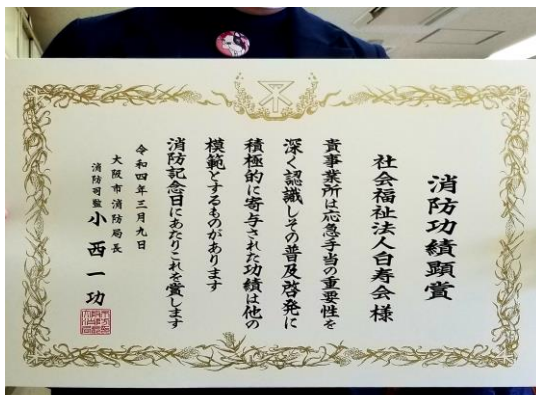 消防功績顕賞
社会福祉法人白寿会様
貴事業所は応急手当の重要性を
深く認識しその普及啓発に
積極的に寄与された功績は他の
模範とするものがあります
消防記念日にあたりこれを賞します
令和四年三月九日
大阪市消防局長
消防司監 小西一功